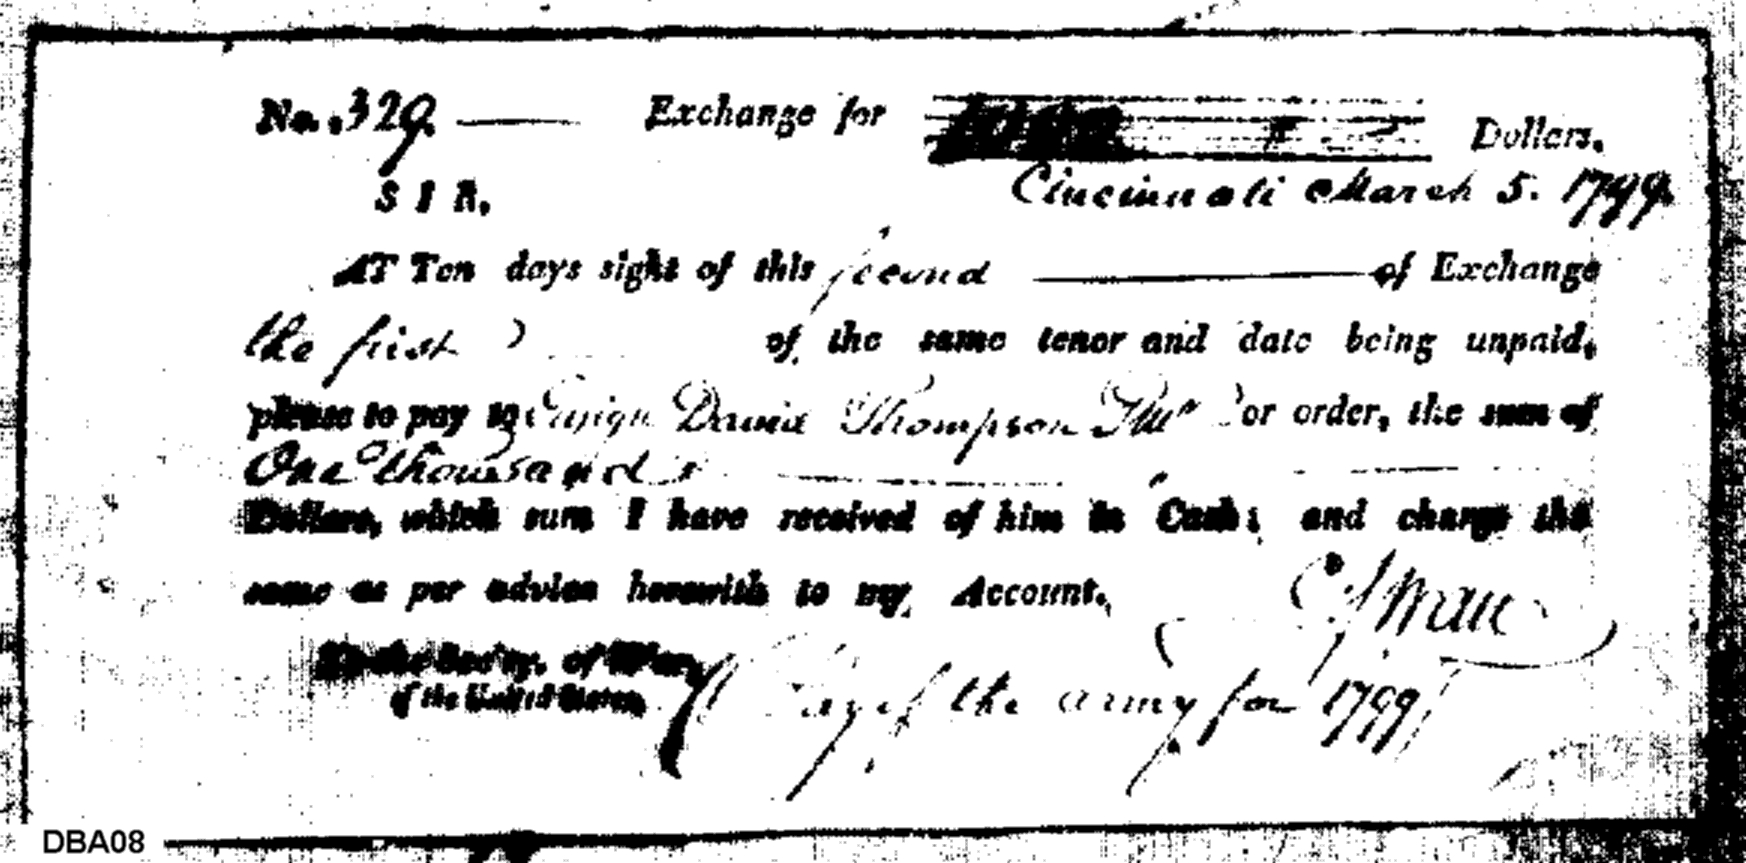 No. 329. Exchange for Dollars.
Cincinnati March 5. 1799.
SIR,
AT Ten days sight of this second of Exchange
the first of the same tenor and date being unpaid,
please to pay to Ensign David Thompson or order, the sum of
One thousand
Dollars, which sum I have received of him in Cash; and charge the
same as per advice herewith to my Account.
C Swan
To the Sec'ry. of War,
of the United States.
Pay of the army for 1799
DBA08